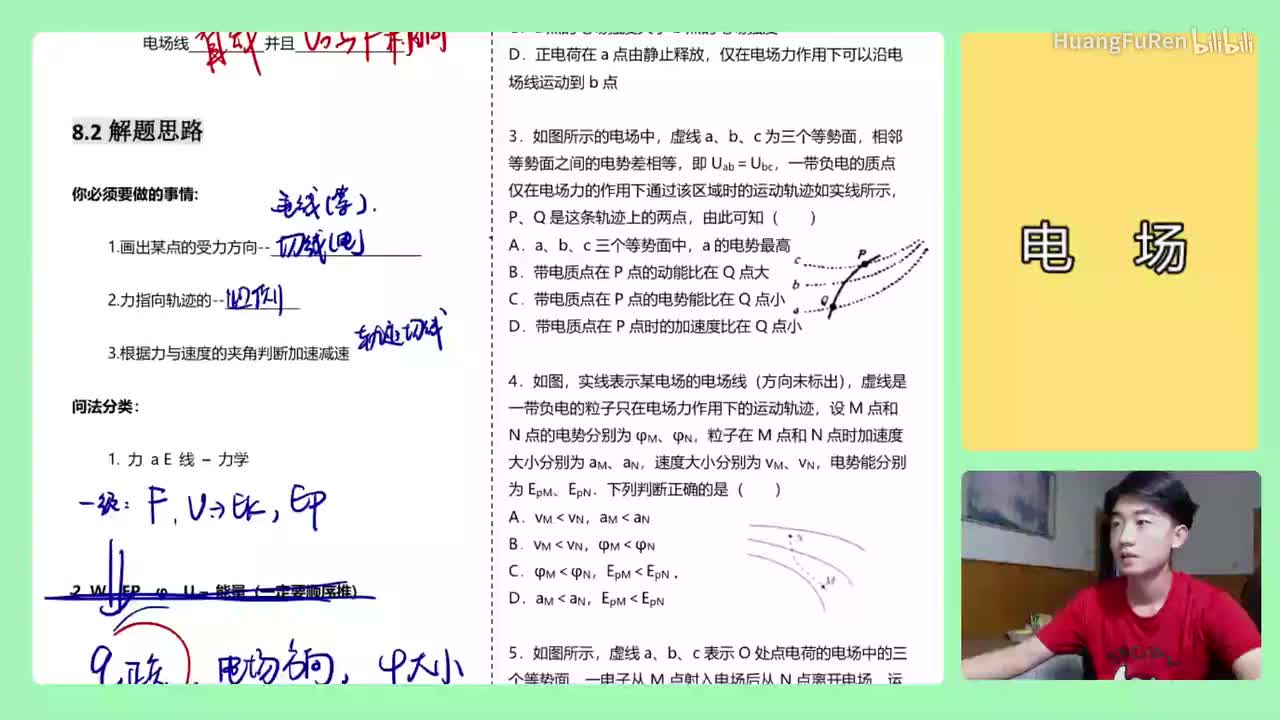 电场线 直线 并且
8.2 解题思路
你必须要做的事情:
电线(掌).
1.画出某点的受力方向-- 切线(电)
2.力指向轨迹的-- 凹侧
轨迹切线
3.根据力与速度的夹角判断加速减速
问法分类:
1. 力 a E 线 – 力学
一级: F, U→Ek, Ep
2 W EP φ U – 能量（一定要顺序推）
电场方向, φ大小
D．正电荷在 a 点由静止释放，仅在电场力作用下可以沿电
场线运动到 b 点
3．如图所示的电场中，虚线 a、b、c 为三个等势面，相邻
等势面之间的电势差相等，即 Uab = Ubc，一带负电的质点
仅在电场力的作用下通过该区域时的运动轨迹如实线所示，
P、Q 是这条轨迹上的两点，由此可知（　　）
A．a、b、c 三个等势面中，a 的电势最高
B．带电质点在 P 点的动能比在 Q 点大
C．带电质点在 P 点的电势能比在 Q 点小
D．带电质点在 P 点时的加速度比在 Q 点小
c
P
b
Q
a
4．如图，实线表示某电场的电场线（方向未标出），虚线是
一带负电的粒子只在电场力作用下的运动轨迹，设 M 点和
N 点的电势分别为 φM、φN，粒子在 M 点和 N 点时加速度
大小分别为 aM、aN，速度大小分别为 vM、vN，电势能分别
为 EpM、EpN．下列判断正确的是（　　）
A．vM < vN，aM < aN
B．vM < vN，φM < φN
C．φM < φN，EpM < EpN．
D．aM < aN，EpM < EpN
N
M
5．如图所示，虚线 a、b、c 表示 O 处点电荷的电场中的三
个等势面，一电子从 M 点射入电场后从 N 点离开电场，运
HuangFuRen bilibili
电 场